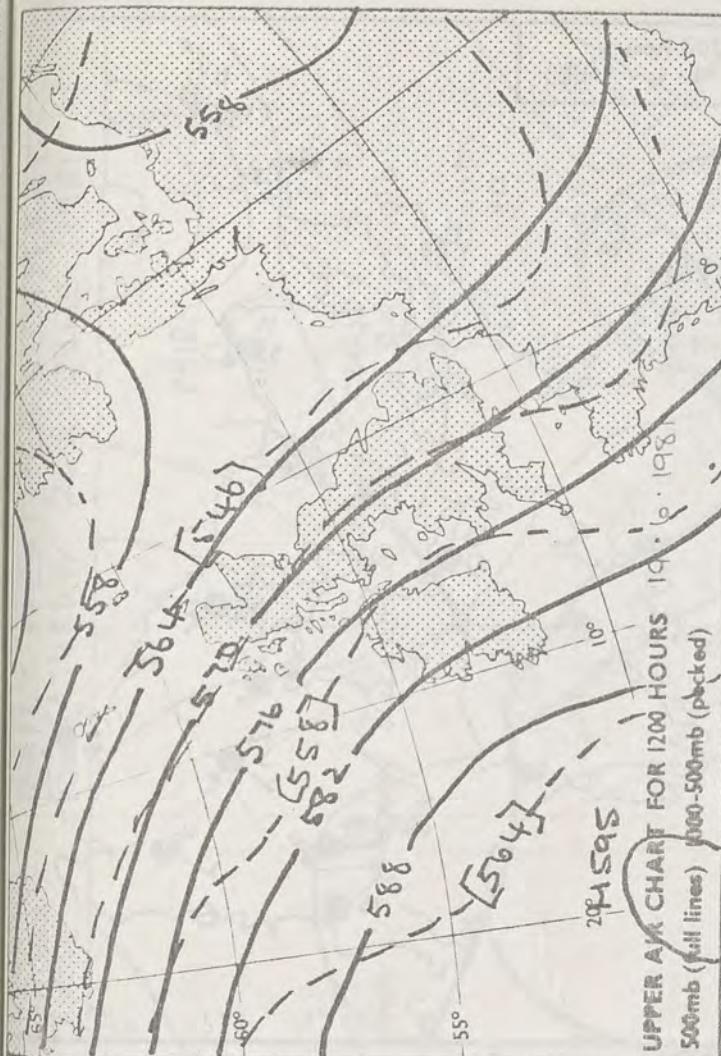 558
558
564
[546]
570
576
[558]
582
588
[564]
H595
65°
60°
55°
20°
10°
0°
UPPER AIR CHART FOR 1200 HOURS 19.6.1981
500mb (full lines) 1000-500mb (pecked)